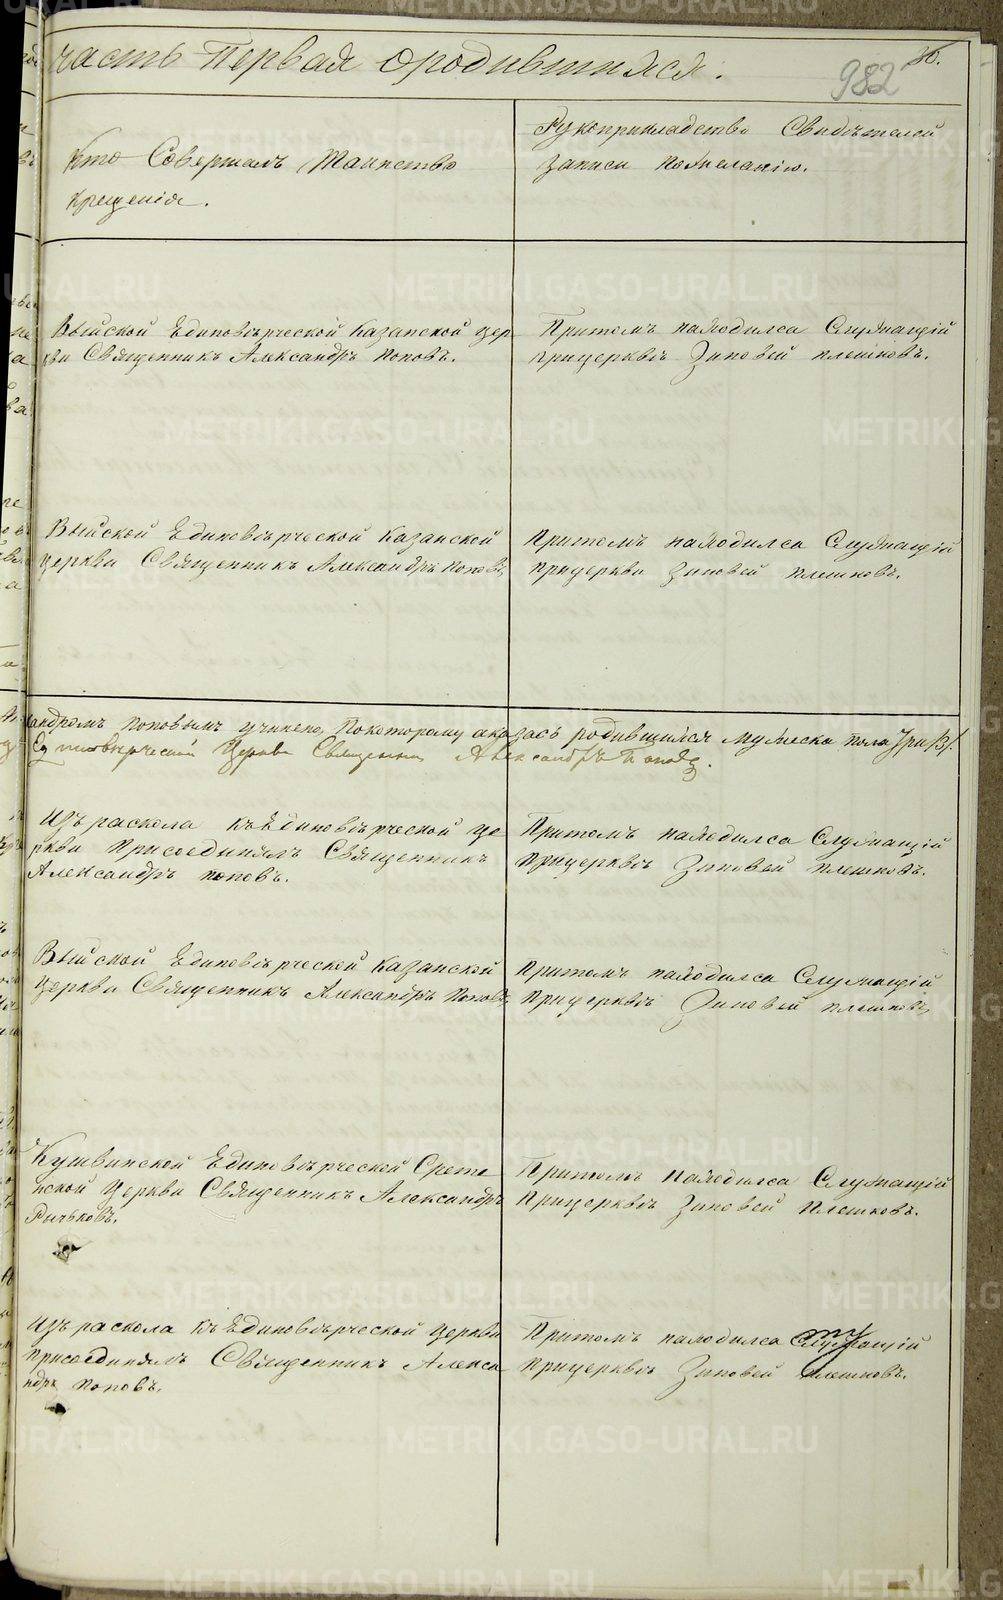 часть Первая ородившихся.
982
Кто Совершалъ Таинство
крещенія.
Рукоприкладство Свидѣтелей
записи пожеланію.
Выйской Единовѣрческой Казанской цер
кви Священникъ Александръ Поповъ.
Притомъ находилса Служащій
прицерквѣ Зиновей плешковъ.
Выйской Единовѣрческой Казанской
церкви Священникъ Александръ Поповъ,
Притомъ находилса Служащій
прицеркви Зиновей плешковъ.
андромъ Поповымъ учинено, Покоторому оказась родившихся мужеска пола три /3/.
Единоверческой Церкви Священник Александръ Поповъ.
Изъ раскола къЕдиновѣрческой це
ркви присоединялъ Священникъ
Александръ поповъ.
Притомъ находилса Служащій
прицерквѣ Зиновей плешковъ.
Выйской Единовѣрческой Казанской
церкви Священникъ Александръ Поповъ,
притомъ находилса Служащій
прицерквѣ Зиновей плешковъ
Кушвинской Единовѣрческой Срете
нской Церкви Священникъ Александръ
Рычьковъ.
Притомъ находилса Служащій
прицерквѣ Зиновей Плешковъ.
Изъ раскола къЕдиновѣрческой церкви
присоединялъ Священникъ Алекса
ндръ поповъ.
Притомъ находилса Служащій
прицерквѣ Зиновей плешковъ.
METRIKI.GASO-URAL.RU